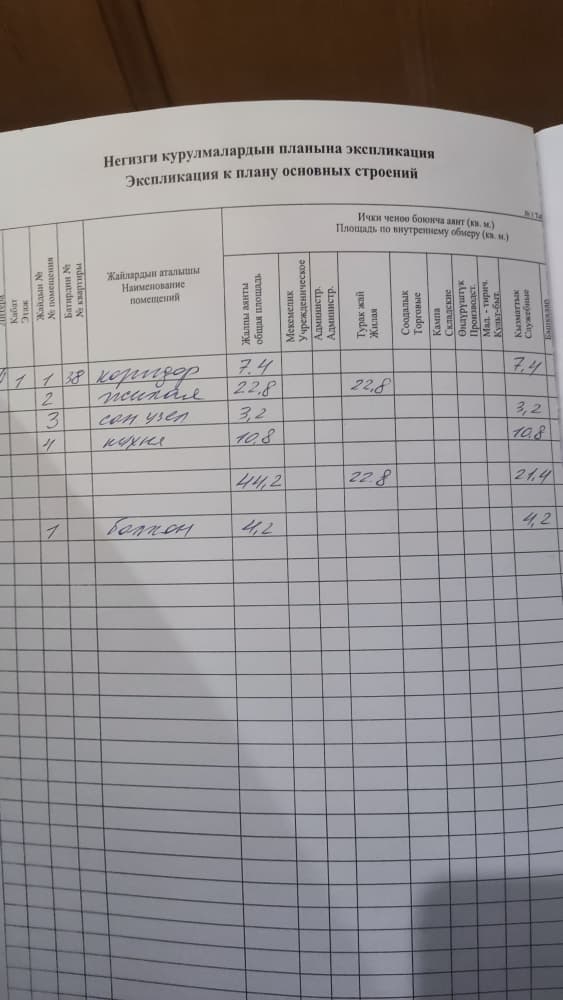 Негизги курулмалардын планына экспликация
Экспликация к плану основных строений
Ички ченөө боюнча аянт (кв. м.)
Площадь по внутреннему обмеру (кв. м.)
Кабат
Этаж
Жайдын №
№ помещения
Батирдин №
№ квартиры
Жайлардын аталышы
Наименование
помещений
Жалпы аянты
общая площадь
Мекемелик
Учрежденическое
Администр.
Администр.
Турак жай
Жилая
Соодалык
Торговые
Кампа
Складские
Өндүрүштүк
Производст.
Мад. - тирич.
Культ-быт.
Кызматтык
Служебные
1 1 38 коридор 7.4 7,4
2 жилая 22,8 22,8
3 сан узел 3,2 3,2
4 кухня 10.8 10.8
44,2 22.8 21.4
1 балкон 4,2 4,2